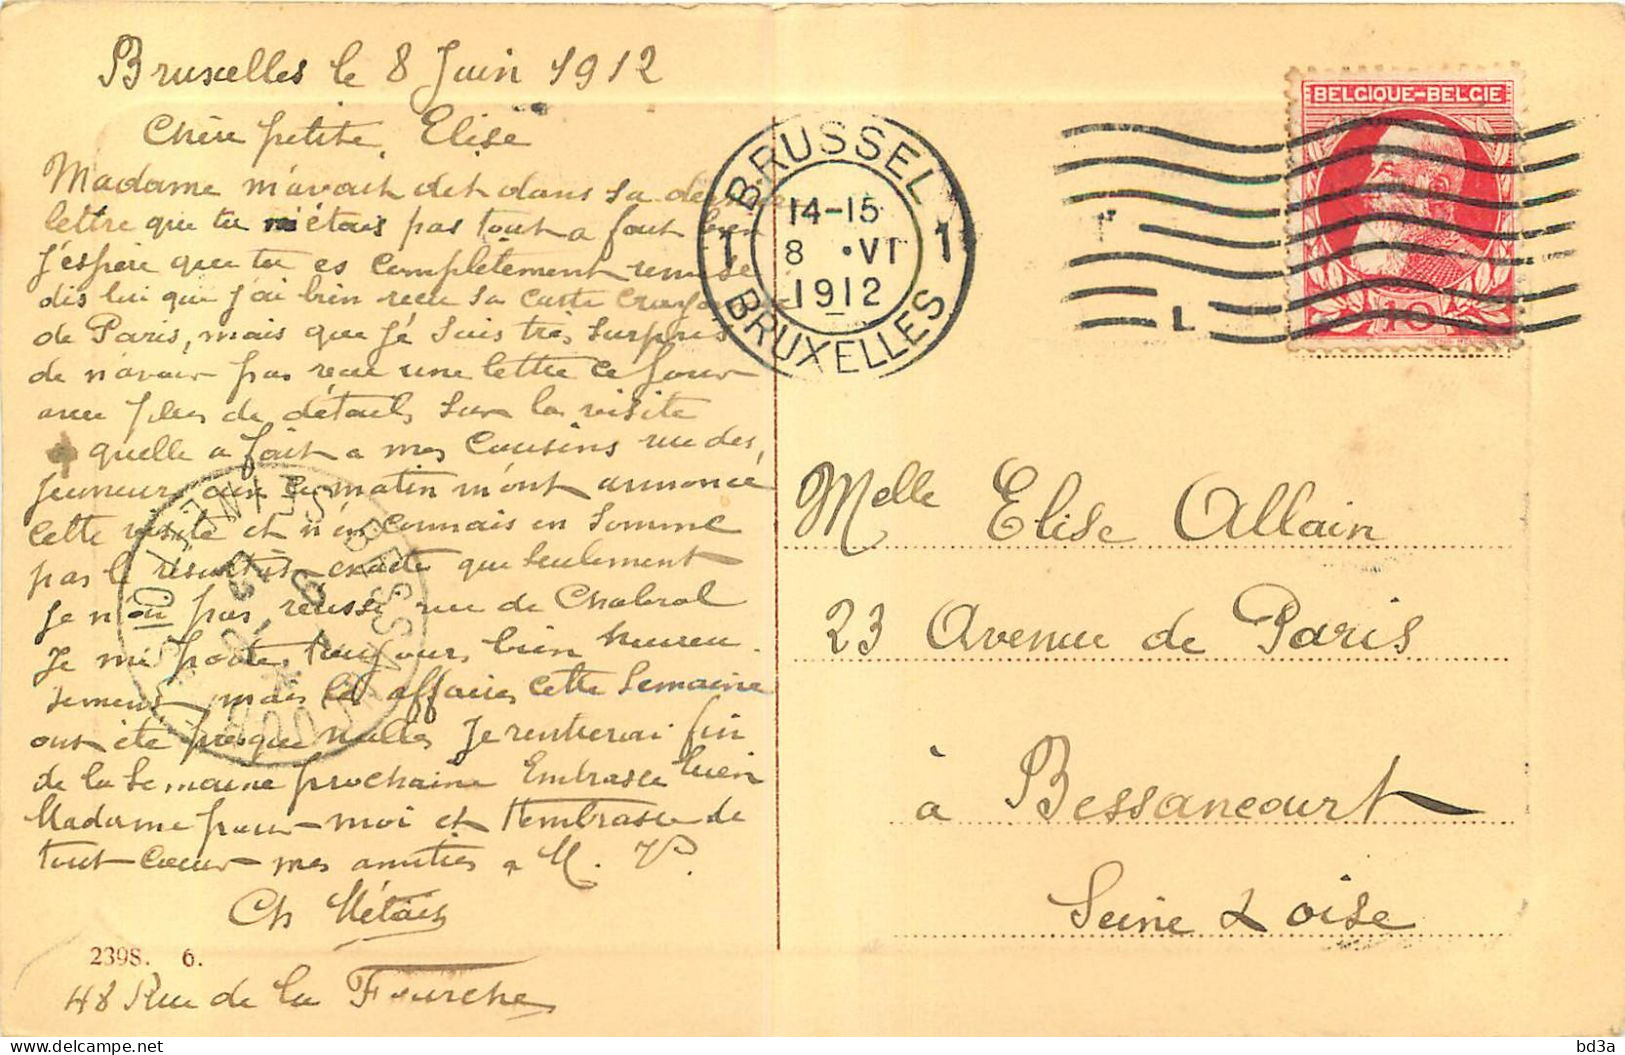 Bruxelles le 8 Juin 1912
Chère petite Elise
Madame m'avait dit dans sa dernière
lettre que tu n'étais pas tout a fait bien
J'espère que tu es complètement remise
dis lui que j'ai bien recu sa carte
de Paris, mais que je suis très surpris
de n'avoir pas recu une lettre ce jour
avec plus de détails sur la visite
quelle a fait a mes Cousins rue des
Jeuneurs, ce matin m'ont annoncé
cette visite et n'en connais en somme
pas le exacte que seulement
Je n'ai pas réussi rue de Chabrol
Je me porte toujours bien heureu
sement mais les affaires cette Semaine
ont été presque nulles Je rentrerai fin
de la Semaine prochaine Embrasse bien
Madame pour moi et t'embrasse de
tout Cœur mes amitiés a M. V.
Ch Métais
2398. 6.
48 Rue de la Fourche
BRUSSEL
1 14-15 1
8 •VI
1912
BRUXELLES
BELGIQUE-BELGIE
10
T
L
Melle Elise Allain
23 Avenue de Paris
à Bessancourt
Seine & Oise
BESSANCOURT
SEINE-ET-OISE
bd3a